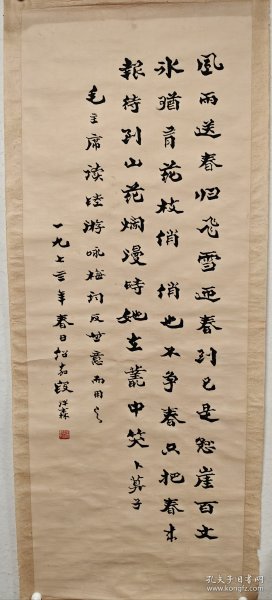 風雨送春归飛雪迎春到已是悬崖百丈
冰猶有花枝俏俏也不争春只把春来
報待到山花爛漫時她在叢中笑 卜算子
毛主席读陸游咏梅詞反其意而用之
一九七三年春日
孔夫子旧书网